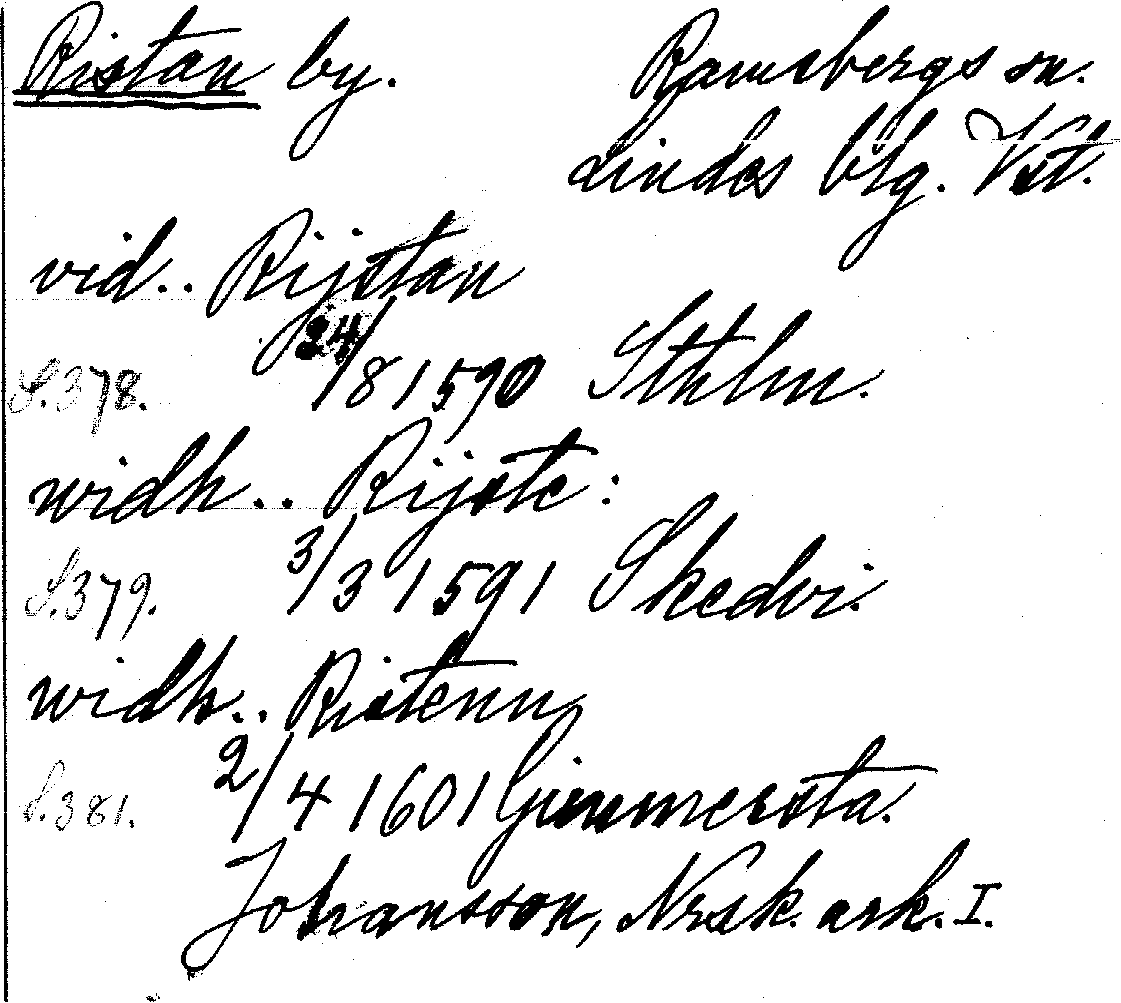 Ristan by. Ramsbergs sn.
Lindes blg. Vst.
vid.. Rijstan
S.378. 24/8 1590 Sthlm.
widh.. Rijste:
S.379. 3/3 1591 Skedvi.
widh.. Ristenn
S.381. 2/4 1601 Gimmersta.
Johansson, Norsk. ark. I.